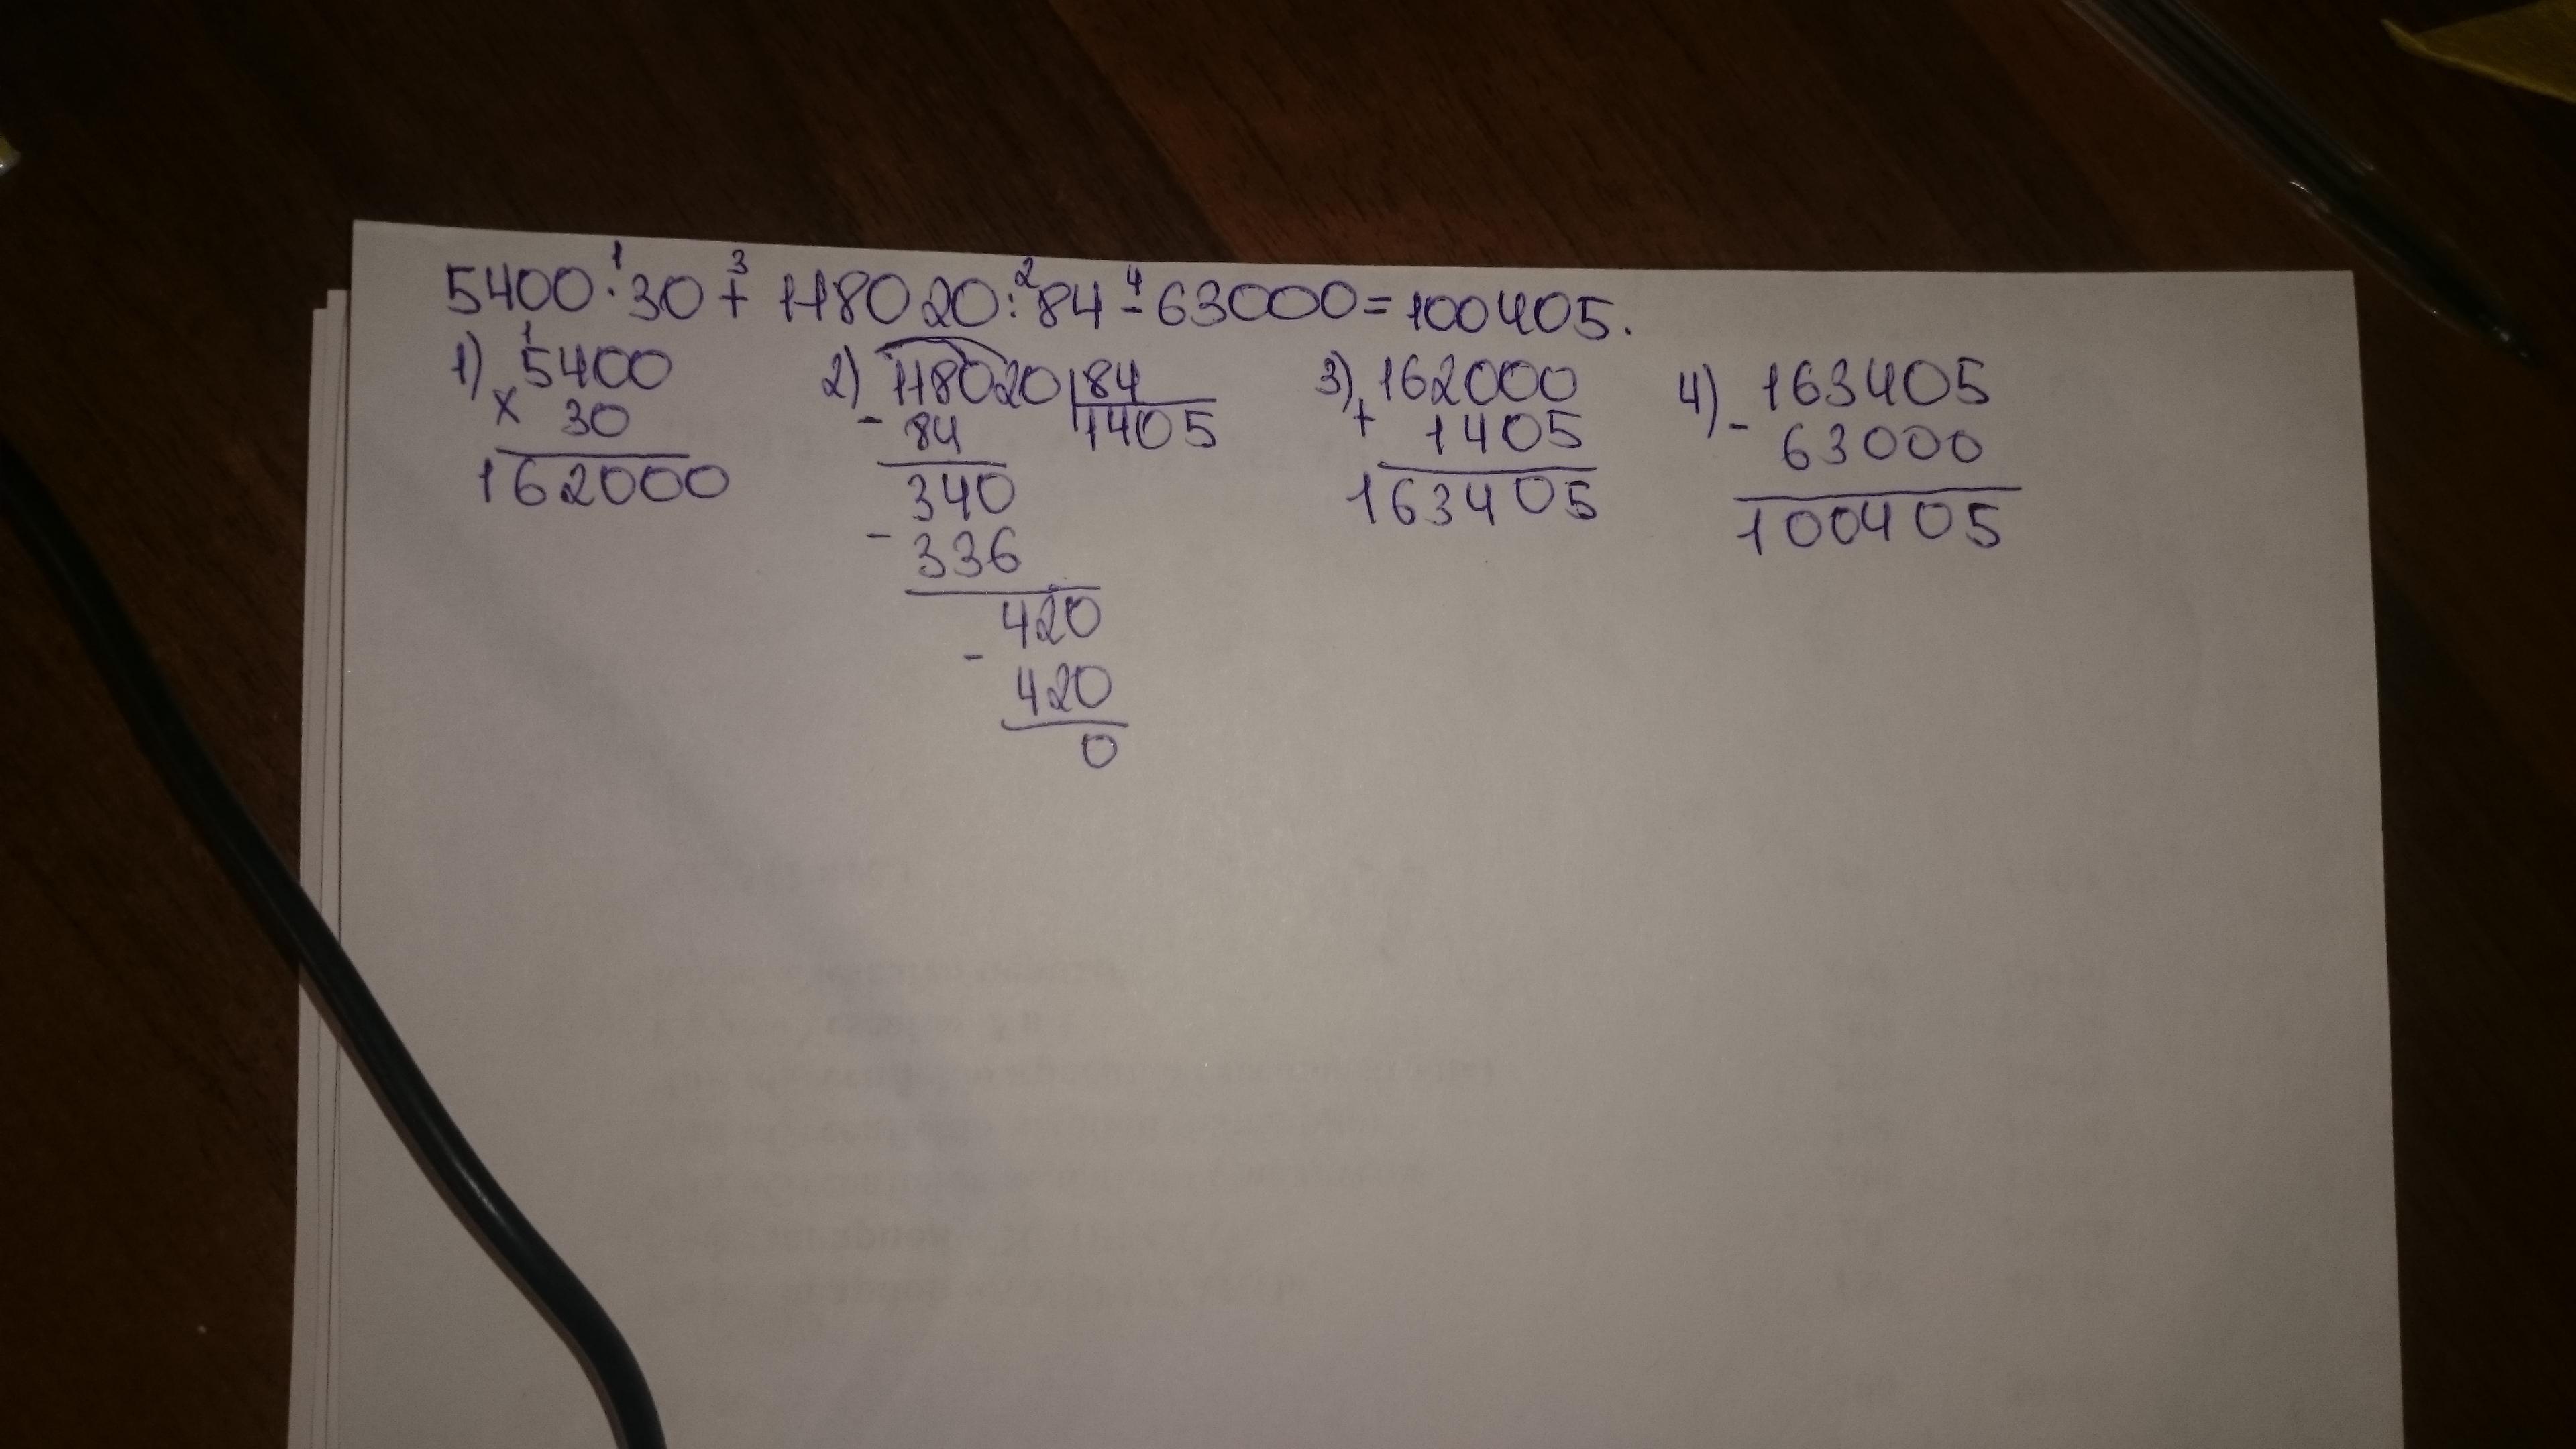 5400·30+118020:84-63000=100405.
1 3 2 4
1) 5400 × 30 162000
1
2) 118020 84 1405
- 84
340
- 336
420
- 420
0
3) 162000 + 1405 163405
4) 163405 - 63000 100405